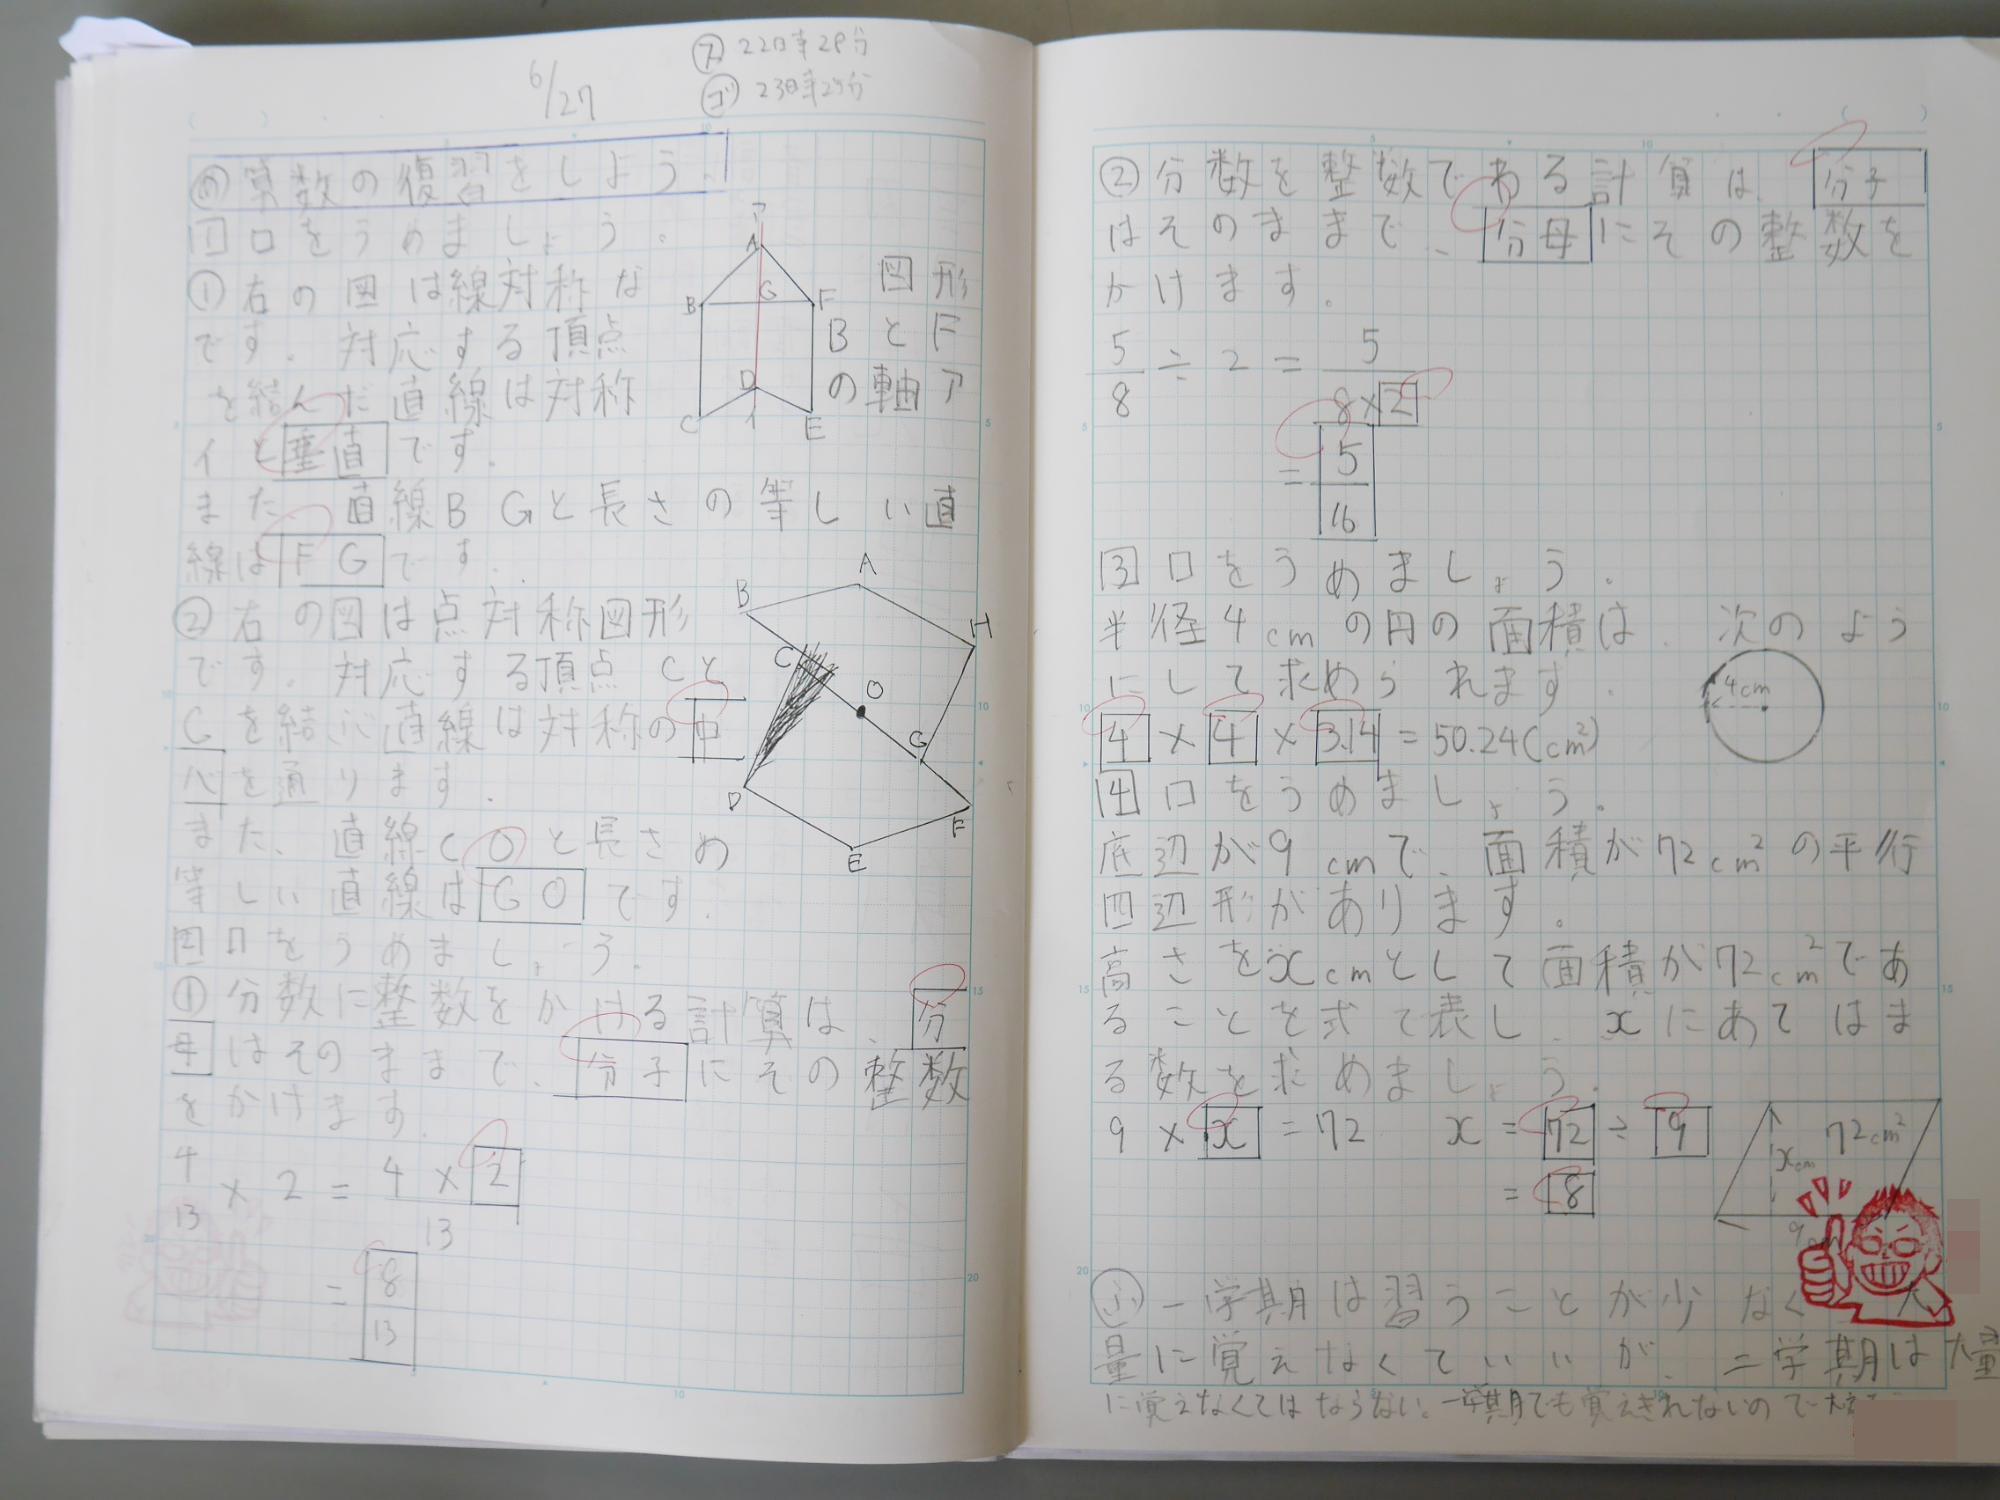 6/27
ス 22時28分
ゴ 23時25分
め 算数の復習をしよう。
1 □をうめましょう。
① 右の図は線対称な図形
です。対応する頂点BとF
を結んだ直線は対称の軸ア
イと垂直です。
また、直線BGと長さの等しい直
線はFGです。
ア
A
B
G
F
D
C
イ
E
② 右の図は点対称図形
です。対応する頂点Cと
Gを結ぶ直線は対称の中
心を通ります。
また、直線COと長さの
等しい直線はGOです。
A
B
H
C
O
G
D
F
E
2 □をうめましょう。
① 分数に整数をかける計算は、分
母はそのままで、分子にその整数
をかけます。
4/13 × 2 = 4×2/13
= 8/13
② 分数を整数でわる計算は、分子
はそのままで、分母にその整数を
かけます。
5/8 ÷ 2 = 5/8×2
= 5/16
3 □をうめましょう。
半径4cmの円の面積は、次のよう
にして求められます。
4cm
4 × 4 × 3.14 = 50.24(cm²)
4 □をうめましょう。
底辺が9cmで、面積が72cm²の平行
四辺形があります。
高さをxcmとして面積が72cm²であ
ることを式で表し、xにあてはま
る数を求めましょう。
9 × x = 72 x = 72 ÷ 9
= 8
72cm²
xcm
9cm
ふ 一学期は習うことが少なく 大
量に覚えなくていいが、二学期は大量
に覚えなくてはならない。一学期でも覚えきれないので